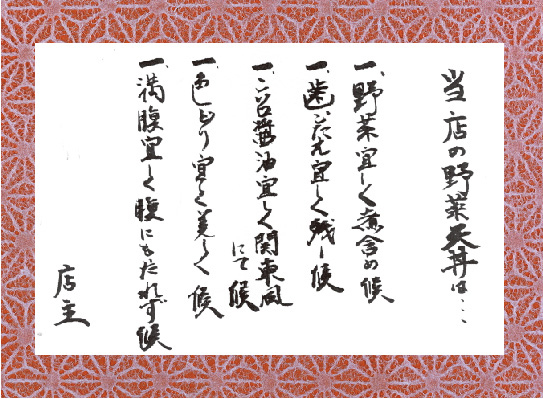 当店の野菜天丼は…
一、野菜宜しく煮含め候
一、歯ごたえ宜しく残し候
一、醤油宜しく関東風
にて候
一、色どり宜しく美しく候
一、満腹宜しく腹にもたれず候
店主